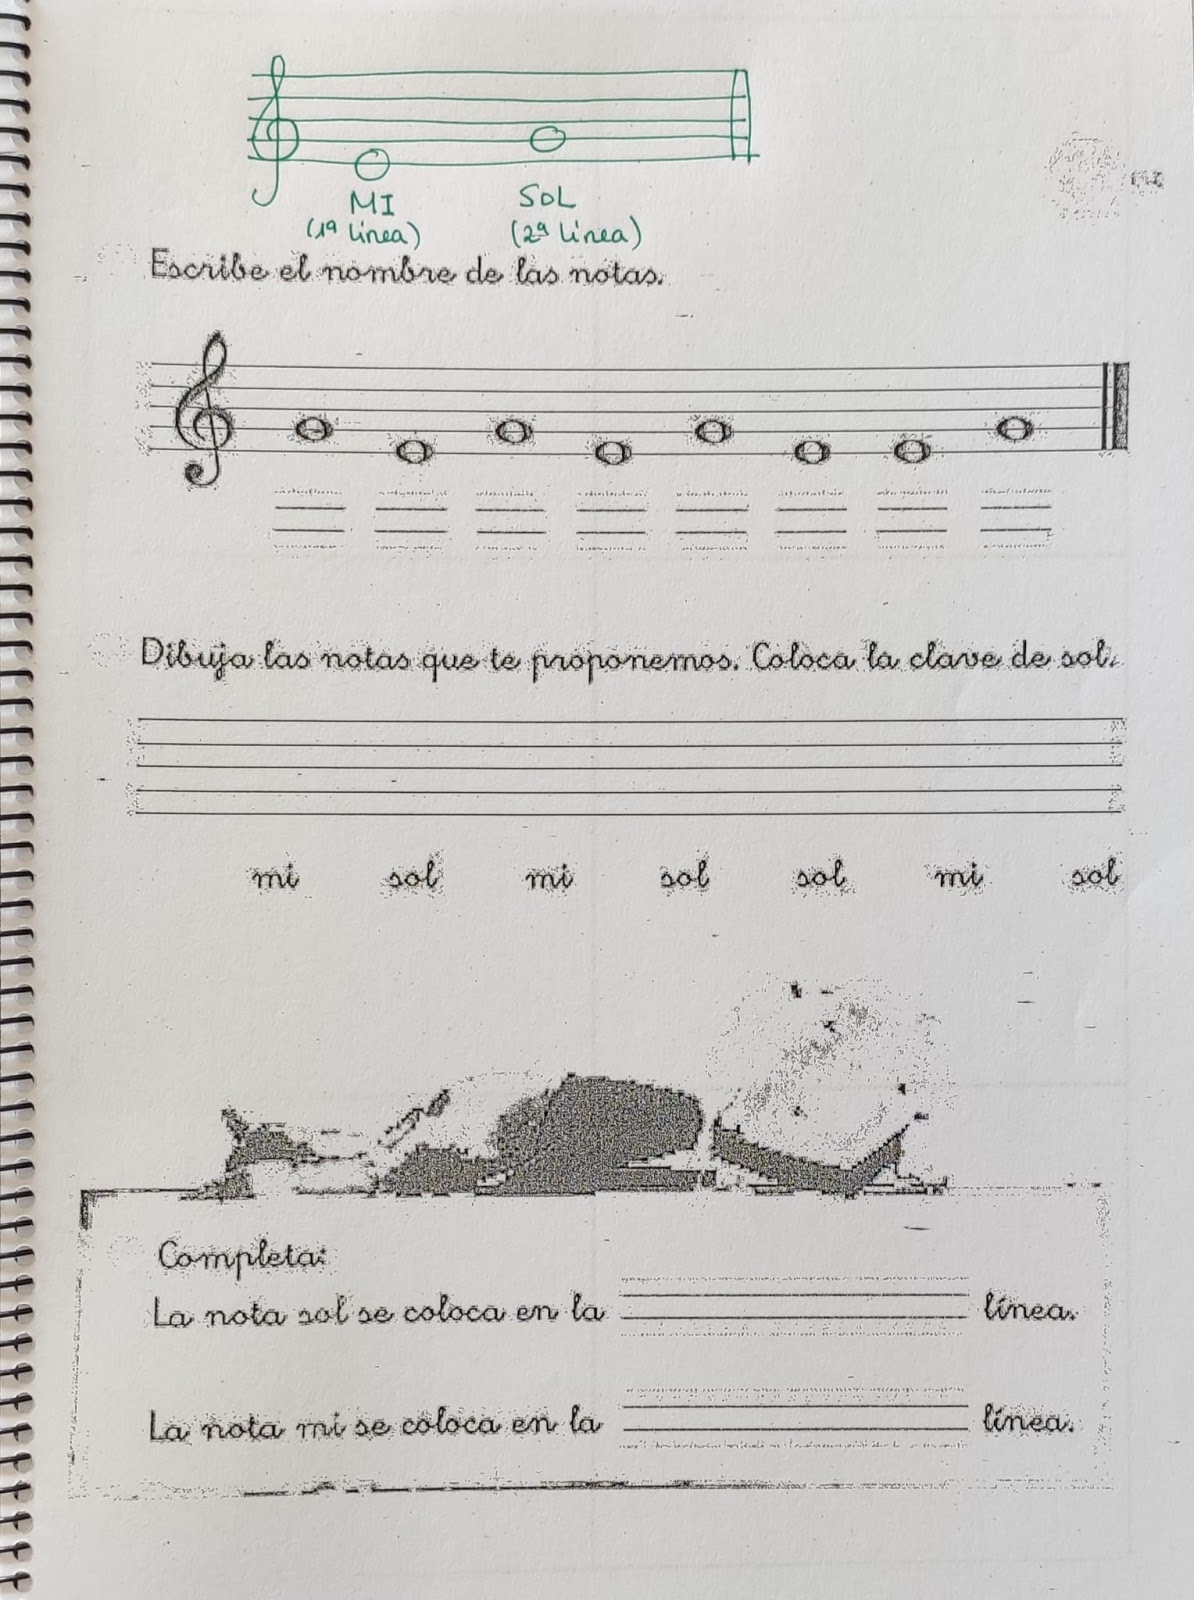 MI SOL
(1ª línea) (2ª línea)
Escribe el nombre de las notas.
Dibuja las notas que te proponemos. Coloca la clave de sol.
mi sol mi sol sol mi sol
Completa:
La nota sol se coloca en la línea.
La nota mi se coloca en la línea.